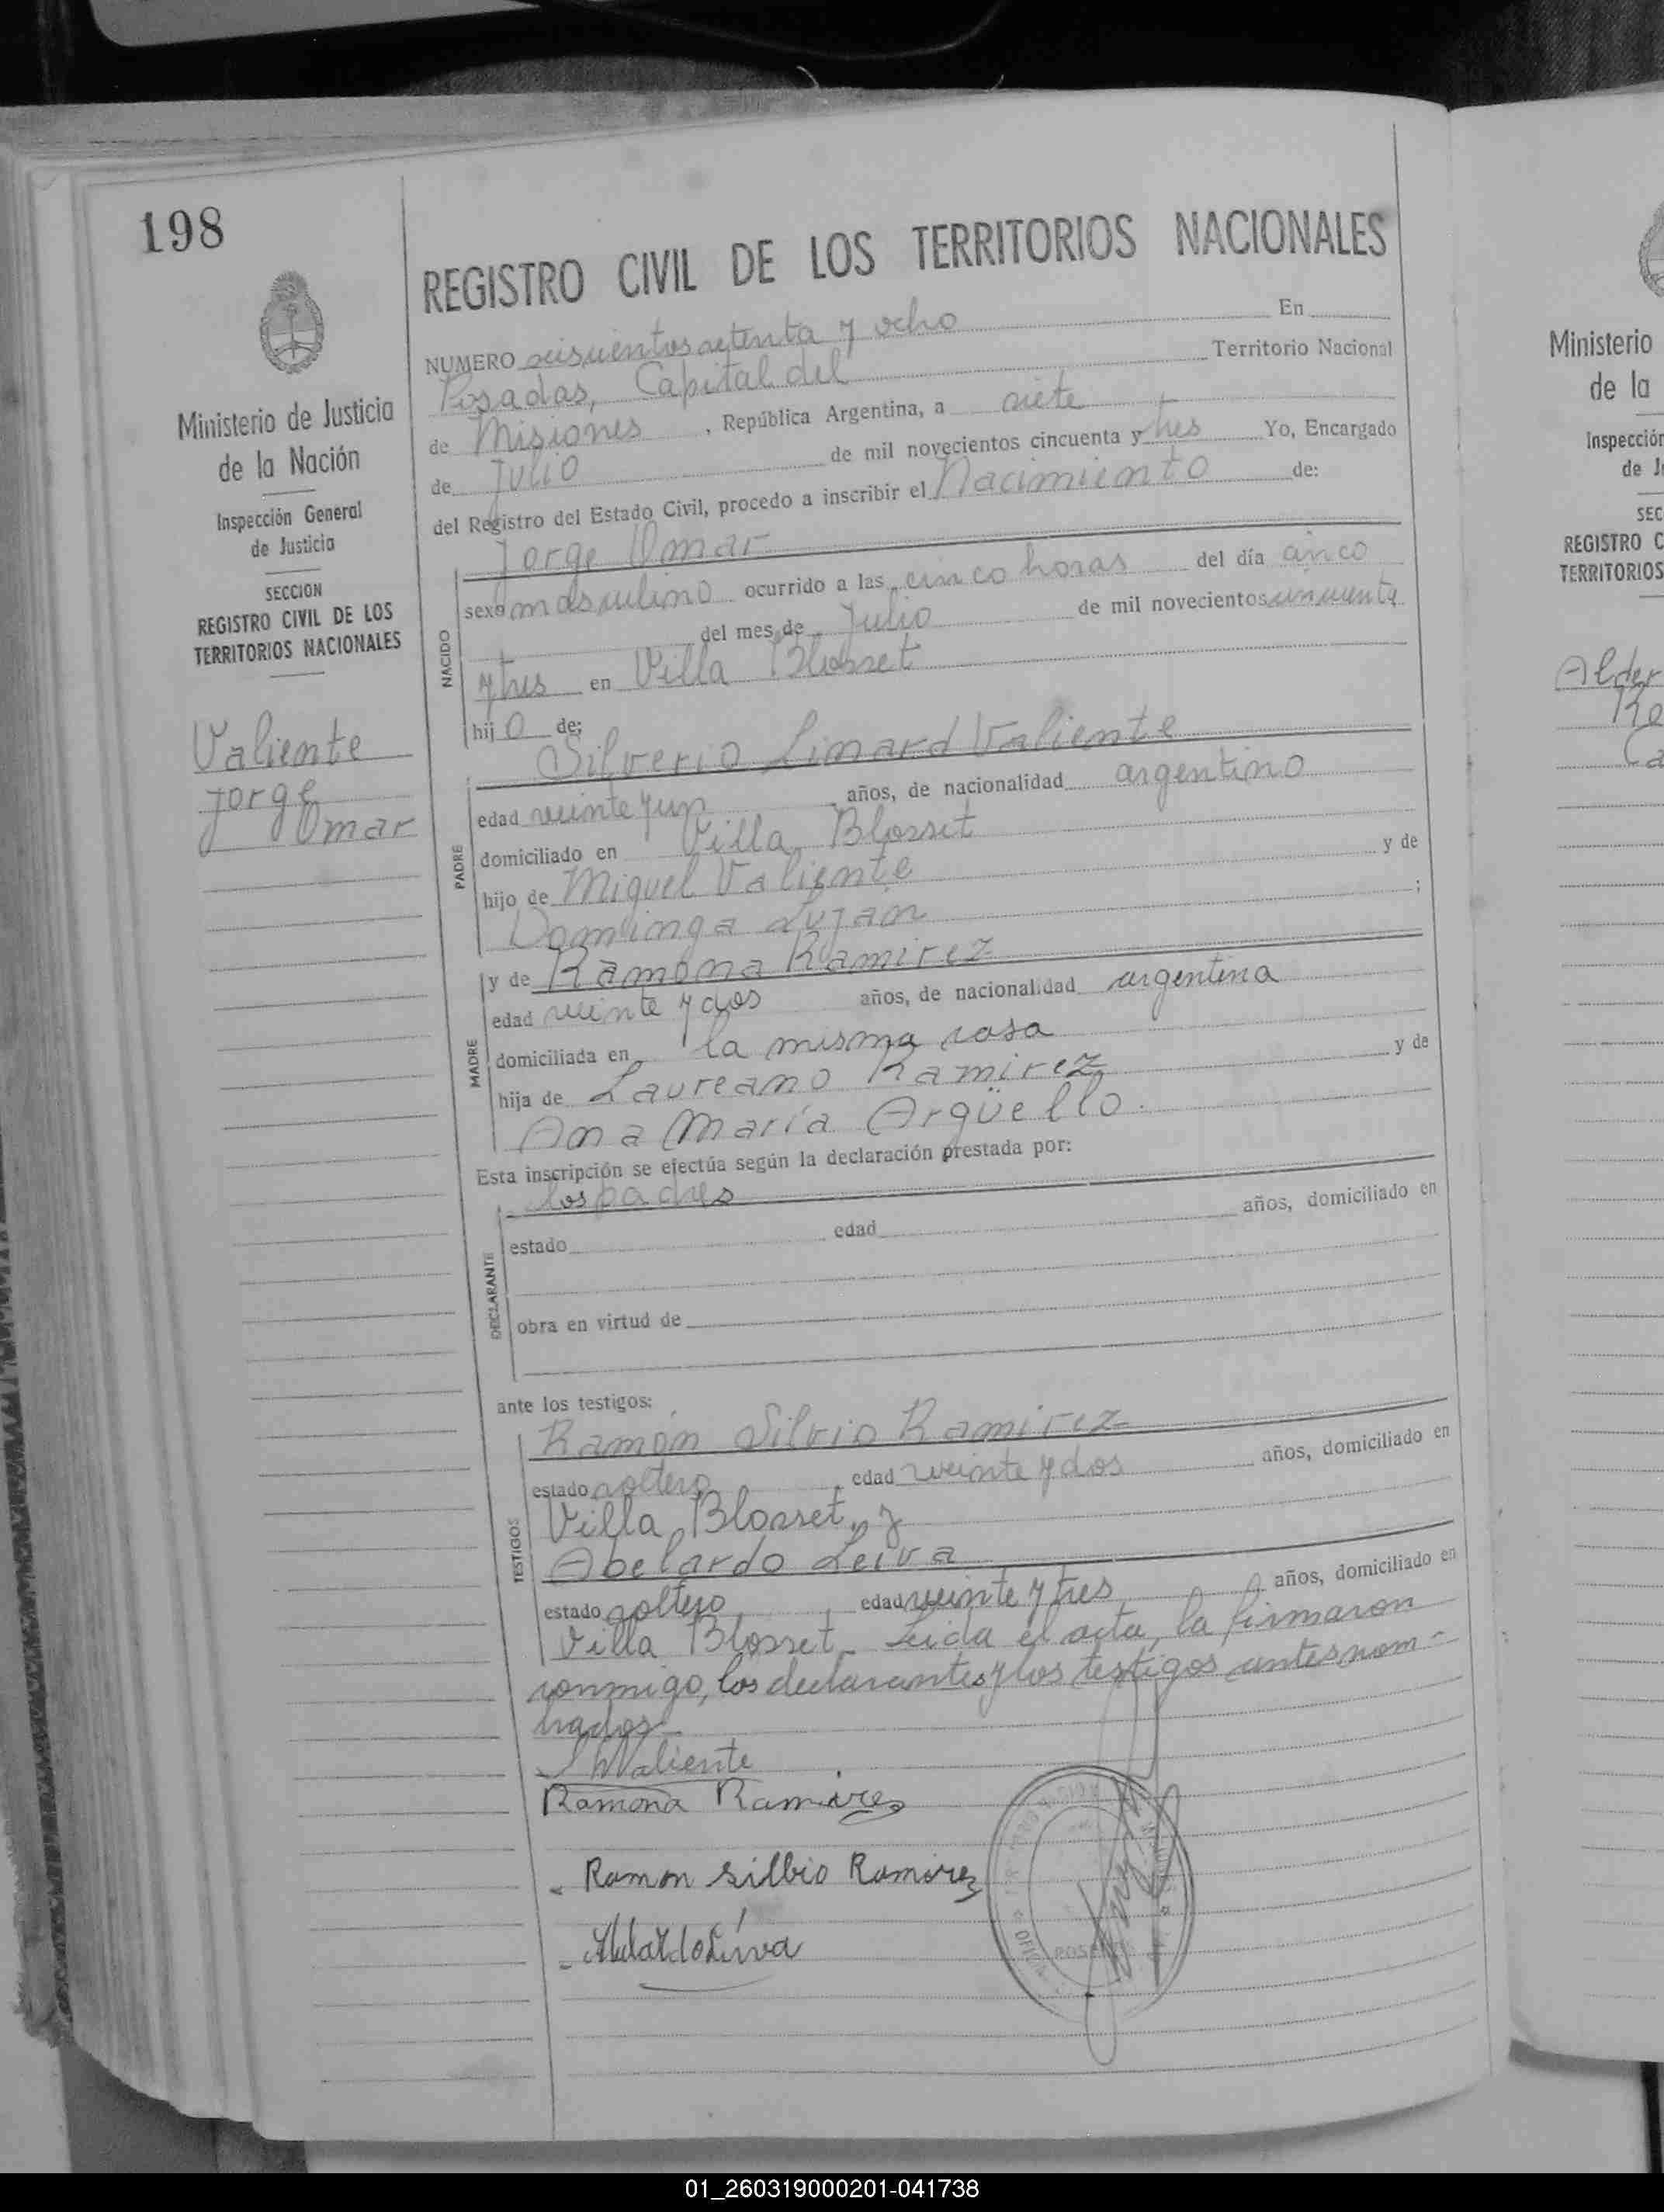 198
Ministerio de Justicia
de la Nación
Inspección General
de Justicia
SECCION
REGISTRO CIVIL DE LOS
TERRITORIOS NACIONALES
Valiente
Jorge
Omar
REGISTRO CIVIL DE LOS TERRITORIOS NACIONALES
NUMERO seiscientos setenta y ocho En
Posadas, Capital del Territorio Nacional
de Misiones, República Argentina, a siete
de Julio de mil novecientos cincuenta y tres Yo, Encargado
del Registro del Estado Civil, procedo a inscribir el Nacimiento de:
Jorge Omar
NACIDO
sexo masculino ocurrido a las cinco horas del día cinco
del mes de Julio de mil novecientos cincuenta
y tres en Villa Blosset
hijo de:
Silverio Linard Valiente
PADRE
edad veinte y un años, de nacionalidad argentino
domiciliado en Villa Blosset
hijo de Miguel Valiente y de
Dominga Luján ;
MADRE
y de Ramona Ramirez
edad veinte y dos años, de nacionalidad argentina
domiciliada en la misma casa
hija de Laureano Ramirez y de
Ana María Argüello.
Esta inscripción se efectúa según la declaración prestada por:
los padres
DECLARANTE
estado edad años, domiciliado en
obra en virtud de
ante los testigos:
TESTIGOS
Ramón Silvio Ramirez
estado soltero, edad veinte y dos años, domiciliado en
Villa Blosset, y
Abelardo Leiva
estado soltero, edad veinte y tres años, domiciliado en
Villa Blosset. Leida el acta, la firmaron
conmigo, los declarantes y los testigos antes nom-
brados.-
Valiente
Ramona Ramires
Ramon Silbio Ramirez
Abelardo Leiva
Ministerio
de la
Inspección
de Ju
SEC
REGISTRO C
TERRITORIOS
Alder
01_260319000201-041738